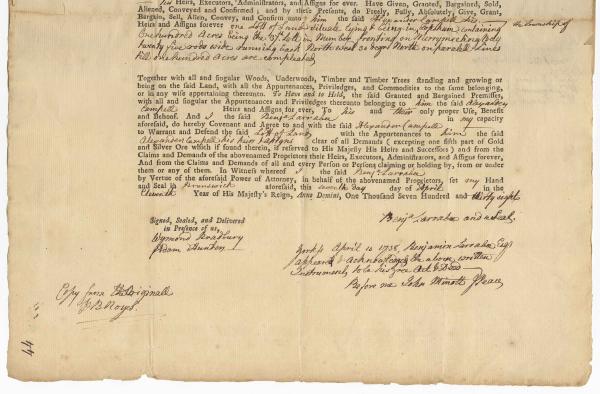 his Heirs, Executors, Administrators, and Assigns for ever. Have Given, Granted, Bargained, Sold,
Aliened, Conveyed and Confirmed; and by these Presents, do Freely, Fully, Absolutely, Give, Grant,
Bargain, Sell, Alien, Convey, and Confirm unto him the said Alexander Campell his
Heirs and Assigns forever one Lott of Land situate lying & being in Topsham containing
the township of
One hundred Acres being the 37 Lott in Number fronting on Merrymeeting Bay
twenty five rods wide running back North west 30 degrs North on paralell Lines
till one hundred Acres are compleated
Together with all and singular Woods, Underwoods, Timber and Timber Trees standing and growing or
being on the said Land, with all the Appurtenances, Priviledges, and Commodities to the same belonging,
or in any wise appertaining thereunto. To Have and to Hold, the said Granted and Bargained Premisses,
with all and singular the Appurtenances and Priviledges thereunto belonging to him the said Alexander
Campell Heirs and Assigns for ever, To his and their only proper Use, Benefit
and Behoof. And I the said Benja Larraba in my capacity
aforesaid, do hereby Covenant and Agree to and with the said Alexander Campell
to Warrant and Defend the said Lott of Land with the Appurtenances to him the said
Alexander Campell his heirs & assigns clear of all Demands (excepting one fifth part of Gold
and Silver Ore which if found therein, is reserved to His Majesty His Heirs and Successors) and from the
Claims and Demands of the abovenamed Proprietors their Heirs, Executors, Administrators, and Assigns forever,
And from the Claims and Demands of all and every Person or Persons claiming or holding by, from or under
them or any of them. In Witness whereof I the said Benja Larraba
by Vertue of the aforesaid Power of Attorney, in Behalf of the abovenamed Proprietors, set my Hand
and Seal in Brunswick aforesaid, this seventh day day of April in the
Eleventh Year of His Majesty's Reign, Anno Domini, One Thousand Seven Hundred and thirty eight
Benja Larraba and a Seal
Signed, Sealed, and Delivered
in Presence of us,
Wymond Bradbury
Adam Hunton
York ss April 10 1738, Benjamin Larraba Esqr
appeared & acknowledged the above written
Instrument to be his free Act & Deed
Before me John Minott J Peace
Copy from the Originall
44